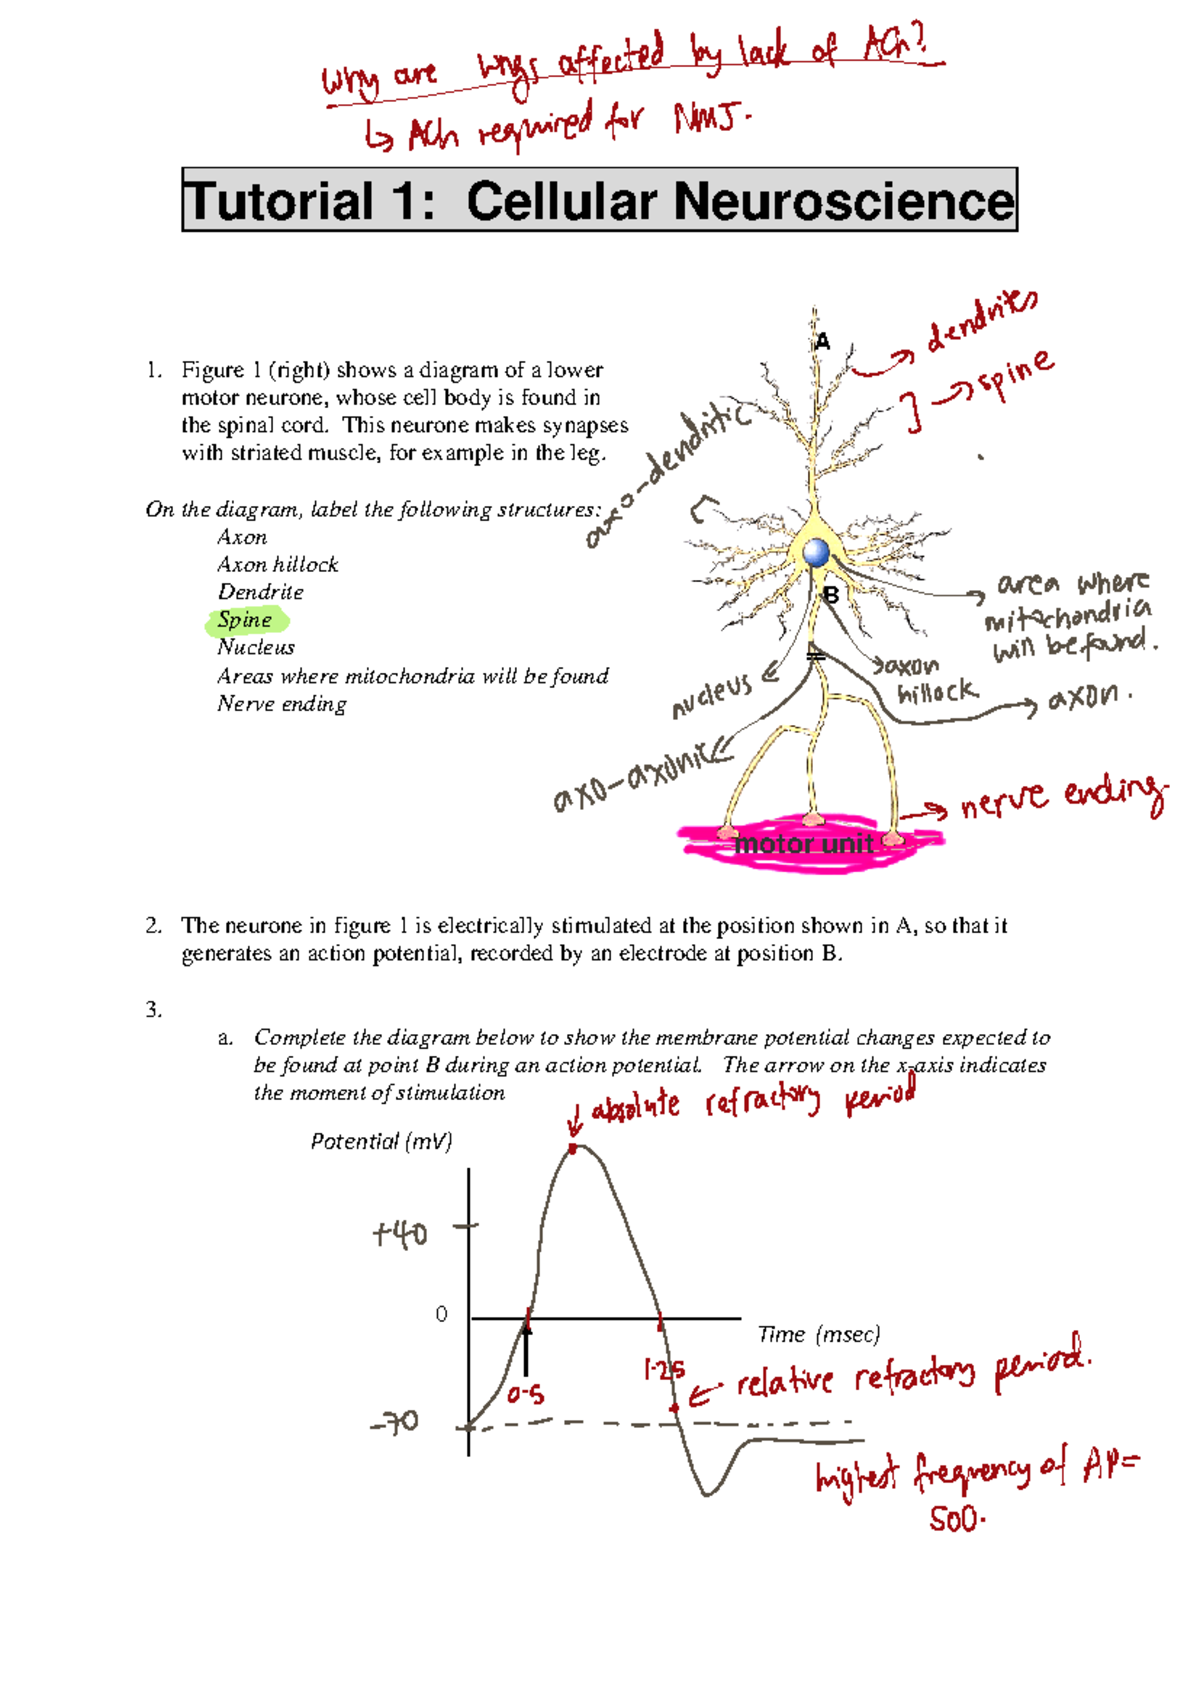 Why are lungs affected by lack of ACh?
↳ ACh required for NMJ.
Tutorial 1: Cellular Neuroscience
1. Figure 1 (right) shows a diagram of a lower
motor neurone, whose cell body is found in
the spinal cord. This neurone makes synapses
with striated muscle, for example in the leg.
On the diagram, label the following structures:
Axon
Axon hillock
Dendrite
Spine
Nucleus
Areas where mitochondria will be found
Nerve ending
A
dendrites
spine
axo-dendritic
B
area where
mitochondria
will be found.
nucleus
axon
hillock
axon.
axo-axonic
nerve ending
motor unit
2. The neurone in figure 1 is electrically stimulated at the position shown in A, so that it
generates an action potential, recorded by an electrode at position B.
3.
a. Complete the diagram below to show the membrane potential changes expected to
be found at point B during an action potential. The arrow on the x-axis indicates
the moment of stimulation
absolute refractory period
Potential (mV)
+40
0
Time (msec)
0.5
1.25
relative refractory period.
-70
highest frequency of AP=
500.